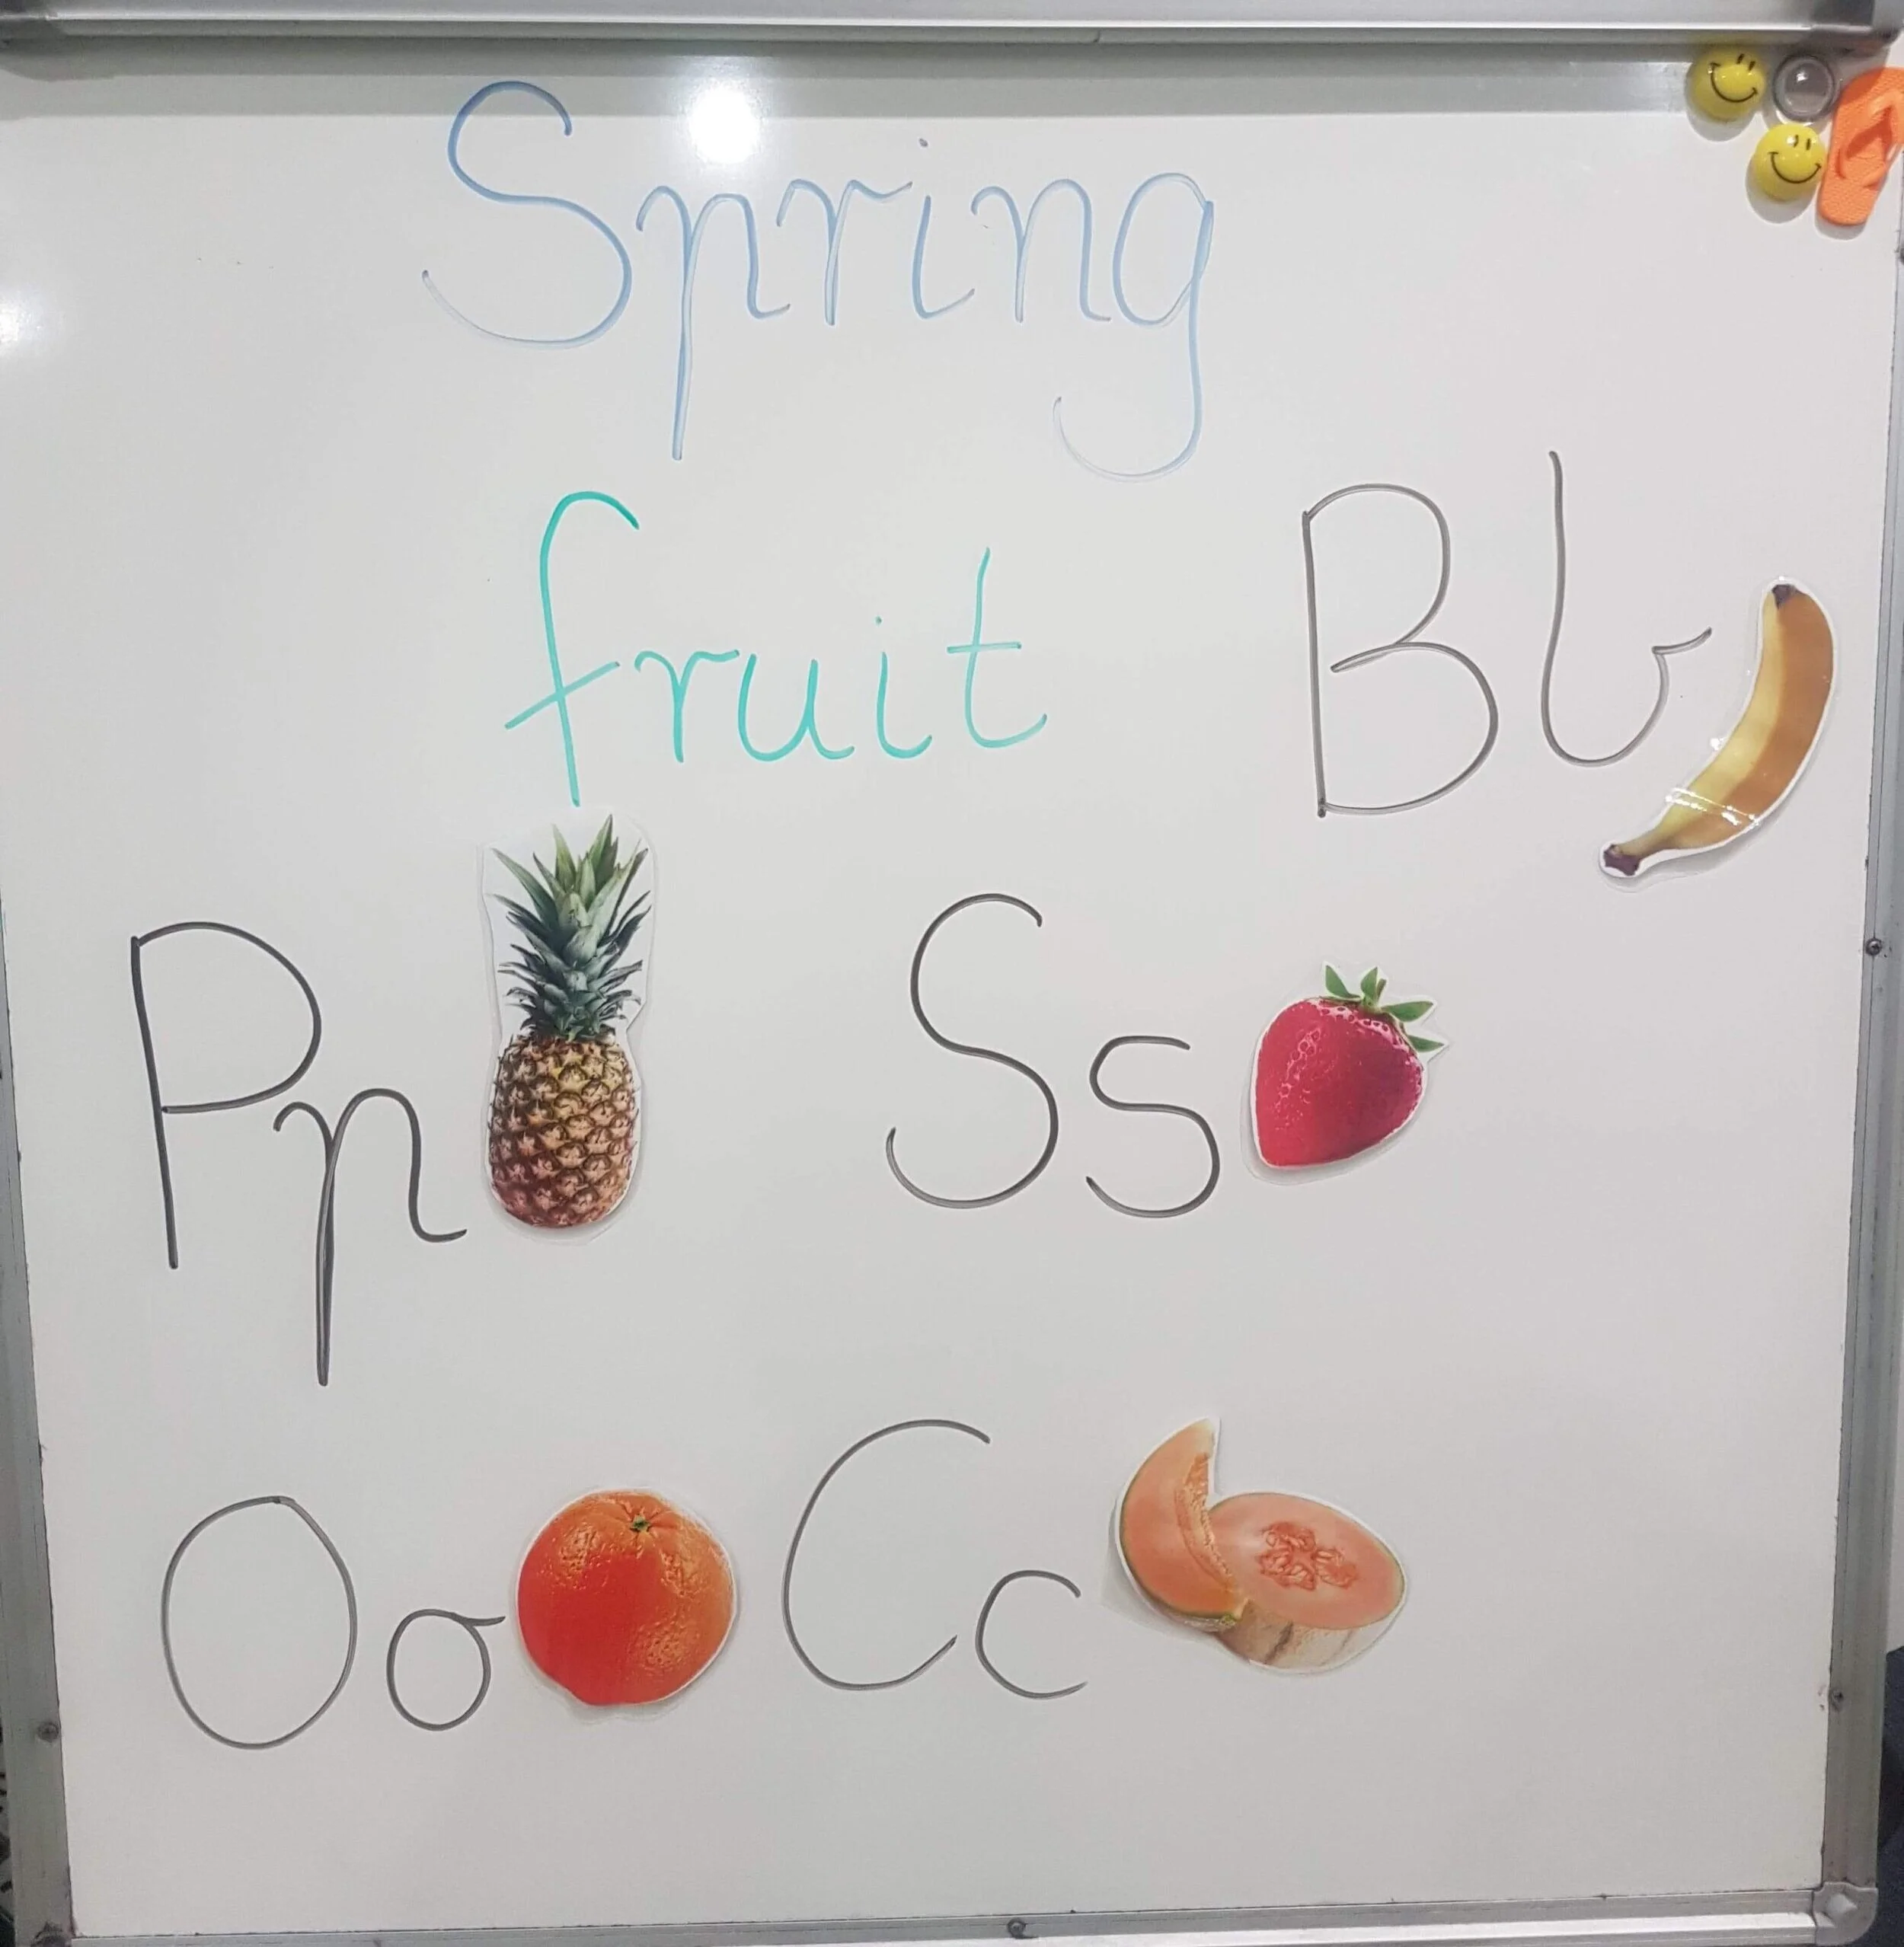 Spring
fruit
Bb
Pp
Ss
Oo
Cc